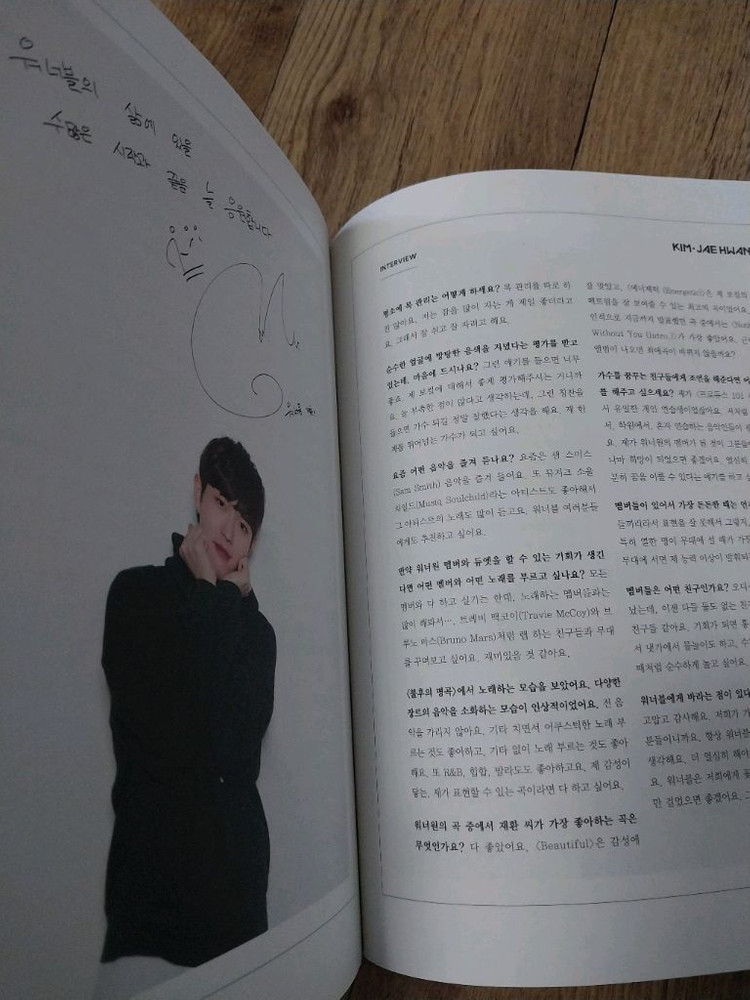 워너블의 삶에 있을
수많은 시작과 끝을 늘 응원합니다
INTERVIEW
KIM·JAE HWAN
평소에 목 관리는 어떻게 하세요? 목 관리를 따로 하
진 않아요. 저는 잠을 많이 자는 게 제일 좋더라고
요. 그래서 잘 쉬고 잘 자려고 해요.
순수한 얼굴에 방탕한 음색을 지녔다는 평가를 받고
있는데, 마음에 드시나요? 그런 얘기를 들으면 너무
좋죠. 제 보컬에 대해서 좋게 평가해주시는 거니까
요. 늘 부족한 점이 많다고 생각하는데, 그런 칭찬을
들으면 가수 되길 정말 잘했다는 생각을 해요.
제를 뛰어넘는 가수가 되고 싶어요.
요즘 어떤 음악을 즐겨 듣나요? 요즘은 샘 스미스
(Sam Smith) 음악을 즐겨 들어요. 또 뮤지크 소울
차일드(Musiq Soulchild)라는 아티스트도 좋아해서
그 아티스트의 노래도 많이 듣고요. 워너블 여러분들
에게도 추천하고 싶어요.
만약 워너원 멤버와 듀엣을 할 수 있는 기회가 생긴
다면 어떤 멤버와 어떤 노래를 부르고 싶나요? 모든
멤버와 다 하고 싶기는 한데, 노래하는 멤버들과는
많이 해봐서…. 트래비 맥코이(Travie McCoy)와 브
루노 마스(Bruno Mars)처럼 랩 하는 친구들과 무대
를 꾸며보고 싶어요. 재미있을 것 같아요.
〈불후의 명곡〉에서 노래하는 모습을 보았어요. 다양한
장르의 음악을 소화하는 모습이 인상적이었어요. 전 음
악을 가리지 않아요. 기타 치면서 어쿠스틱한 노래 부
르는 것도 좋아하고, 기타 없이 노래 부르는 것도 좋아
해요. 또 R&B, 힙합, 발라드도 좋아하고요. 제 감성이
닿는, 제가 표현할 수 있는 곡이라면 다 하고 싶어요.
워너원의 곡 중에서 재환 씨가 가장 좋아하는 곡은
무엇인가요? 다 좋았어요. 〈Beautiful〉은 감성에
잘 맞았고, 〈에너제틱 (Energetic)〉은 제 보컬의
펙트럼을 잘 보여줄 수 있는 최고의 곡이었어요.
인적으로 지금까지 발표했던 곡 중에서는
Without You (Intro.)〉가 가장 좋았어요.
앨범이 나오면 최애곡이 바뀌지 않을까요?
가수를 꿈꾸는 친구들에게 조언을 해준다면
를 해주고 싶으세요? 제가 〈프로듀스 101
서 유일한 개인 연습생이었잖아요. 저처럼
서, 학원에서, 혼자 연습하는 음악인들이
요. 제가 워너원의 멤버가 된 것이 그분들
나마 희망이 되었으면 좋겠어요. 열심히
분히 꿈을 이룰 수 있다는 얘기를 하고
멤버들이 있어서 가장 든든한 때는
들끼리라서 표현을 잘 못해서 그렇지,
특히 열한 명이 무대에 설 때가 가장
무대에 서면 제 능력 이상이 발휘되
멤버들은 어떤 친구인가요?
났는데, 이젠 다들 둘도 없는 친
친구들 같아요. 기회가 되면
서 냇가에서 물놀이도 하고,
때처럼 순수하게 놀고 싶어요.
워너블에게 바라는 점이 있다
고맙고 감사해요. 저희가
분들이니까요. 항상 워너블
생각해요. 더 열심히 해야
요. 워너블은 저희에게
만 걸었으면 좋겠어요.